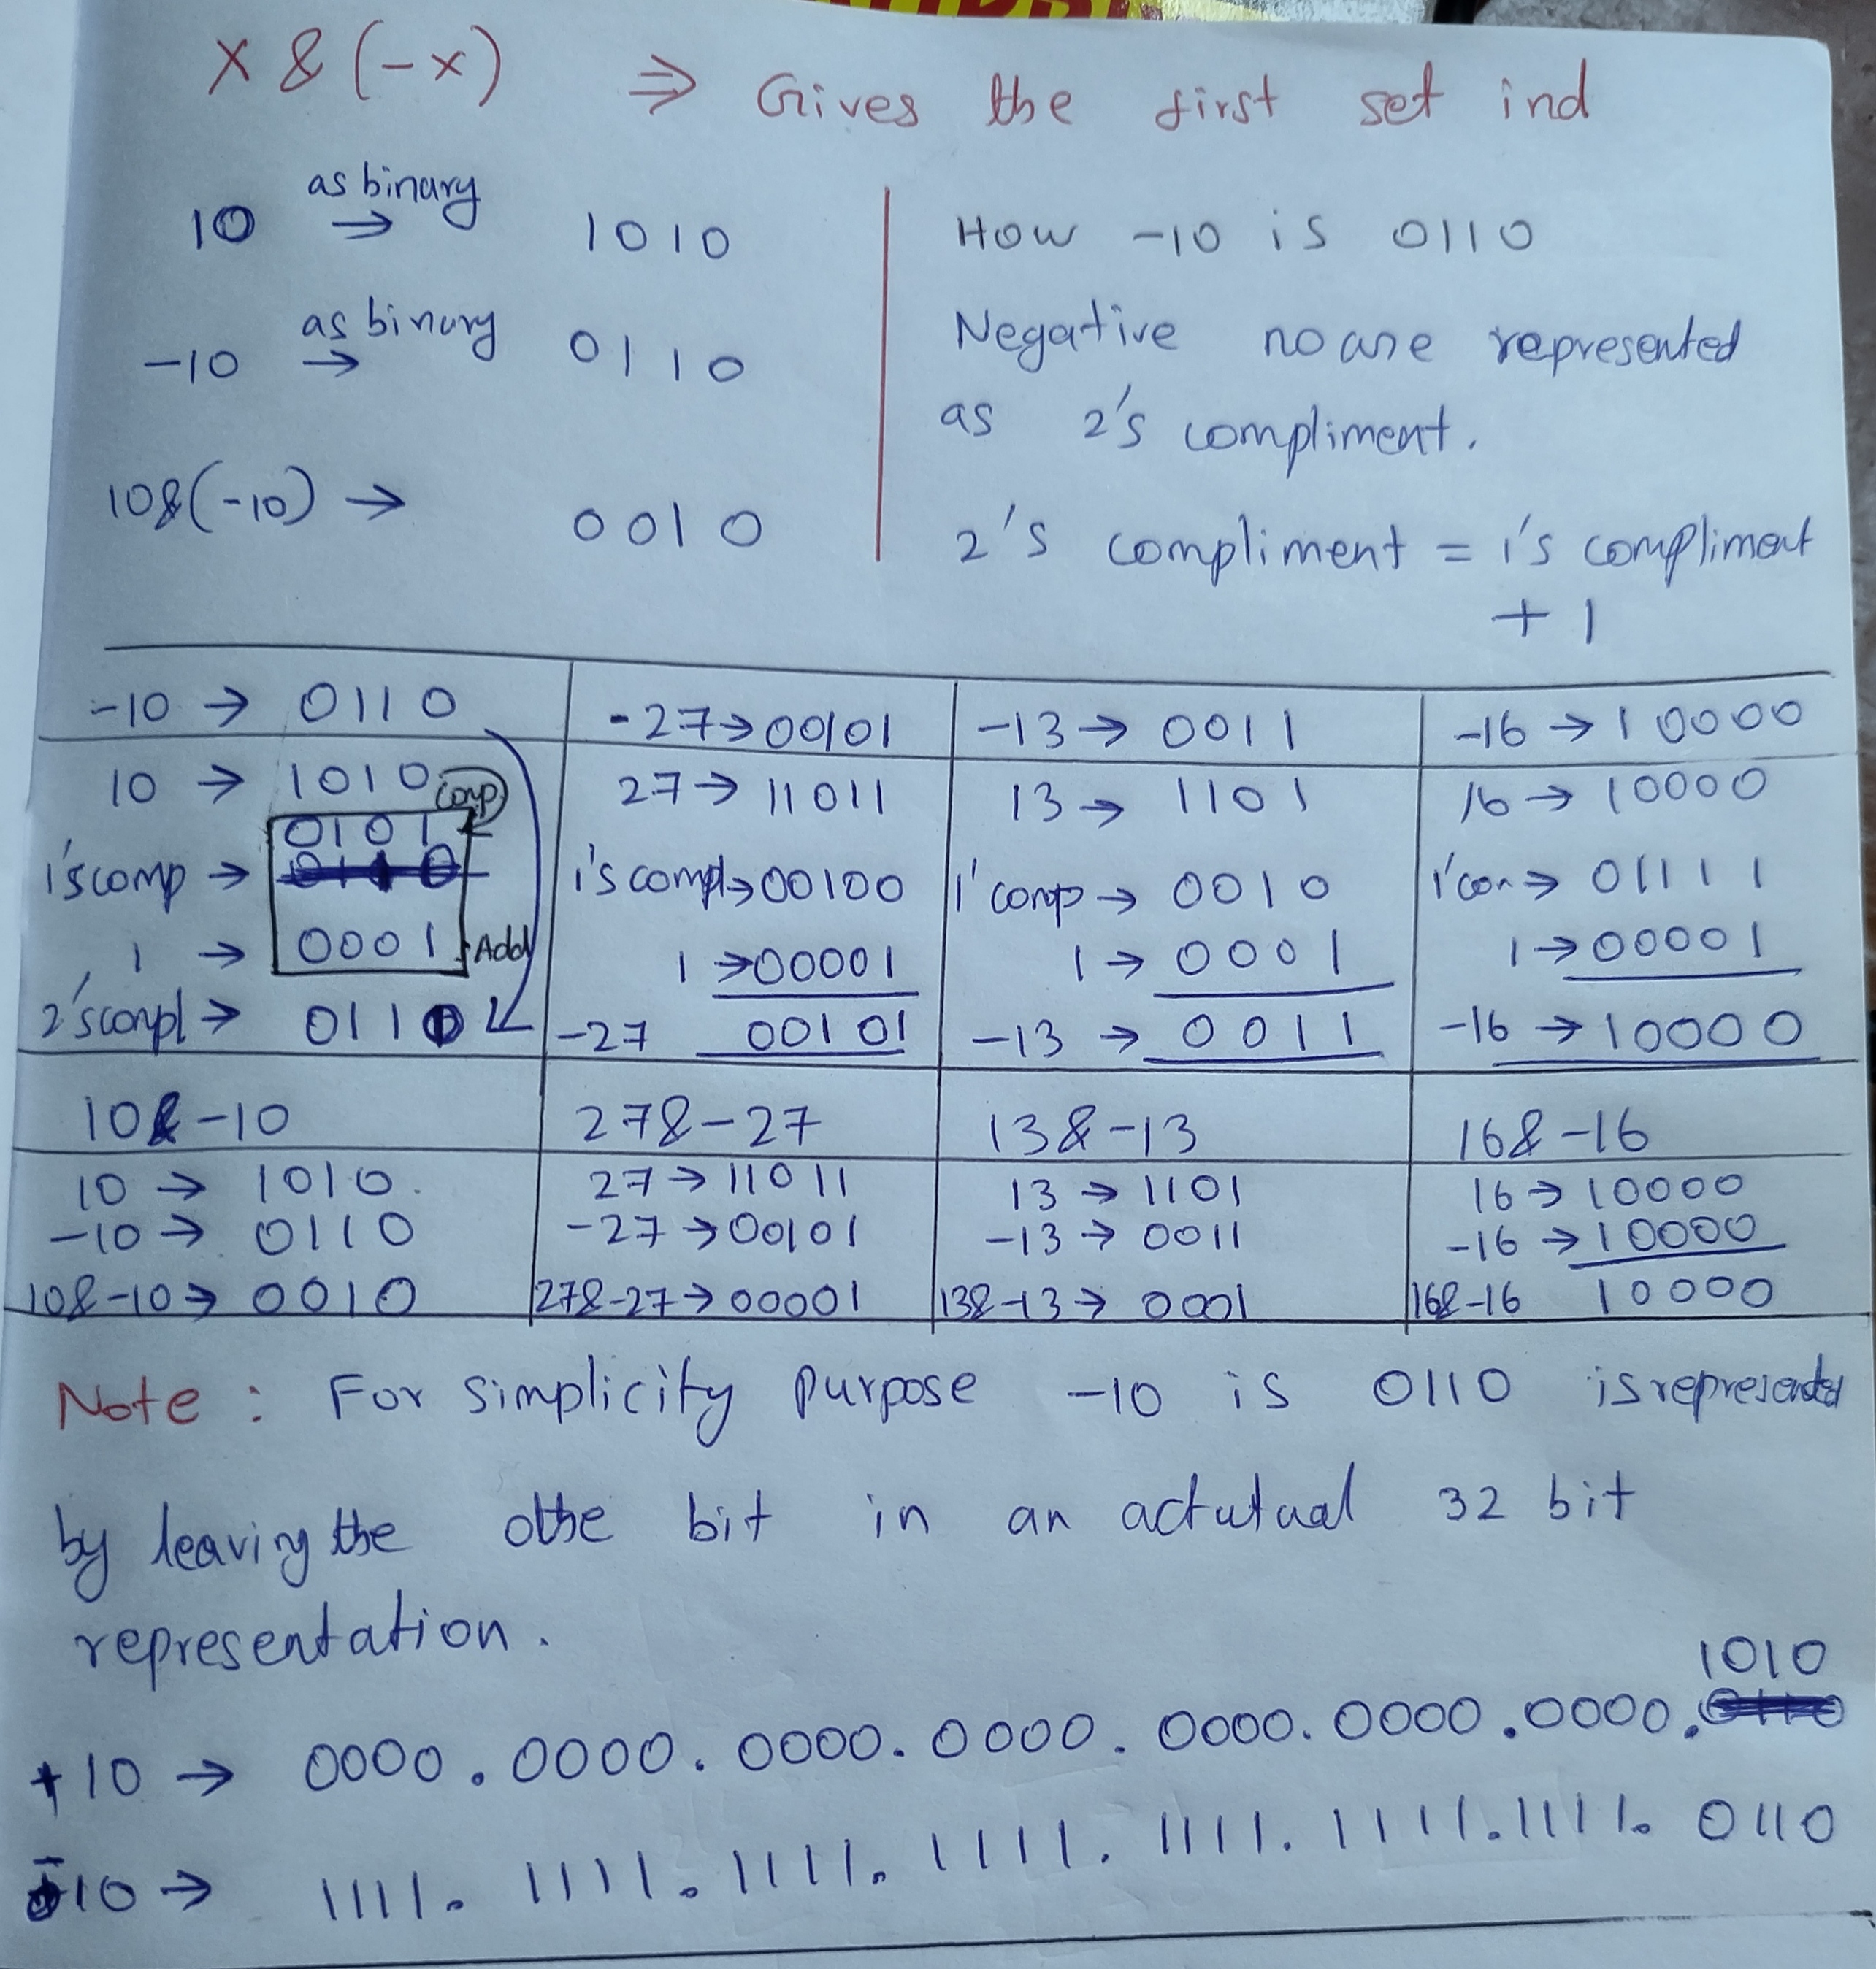 x & (-x) ⇒ Gives the first set ind
10 as binary → 1010
-10 as binary → 0110
10&(-10) → 0010
How -10 is 0110
Negative no are represented
as 2's compliment.
2's compliment = 1's compliment
+ 1
-10 → 0110
10 → 1010 comp
0101
1's comp →
1 → 0001 Add
2's compl → 0110
-27 → 00101
27 → 11011
1's compl → 00100
1 → 00001
-27 00101
-13 → 0011
13 → 1101
1' comp → 0010
1 → 0001
-13 → 0011
-16 → 10000
16 → 10000
1' con → 01111
1 → 00001
-16 → 10000
10&-10
10 → 1010.
-10 → 0110
10&-10 → 0010
27&-27
27 → 11011
-27 → 00101
27&-27 → 00001
13&-13
13 → 1101
-13 → 0011
13&-13 → 0001
16&-16
16 → 10000
-16 → 10000
16&-16 10000
Note : For simplicity purpose -10 is 0110 is represented
by leaving the othe bit in an actutual 32 bit
representation.
1010
+10 → 0000.0000.0000.0000.0000.0000.0000.
-10 → 1111.1111.1111.1111.1111.1111.1111.0110